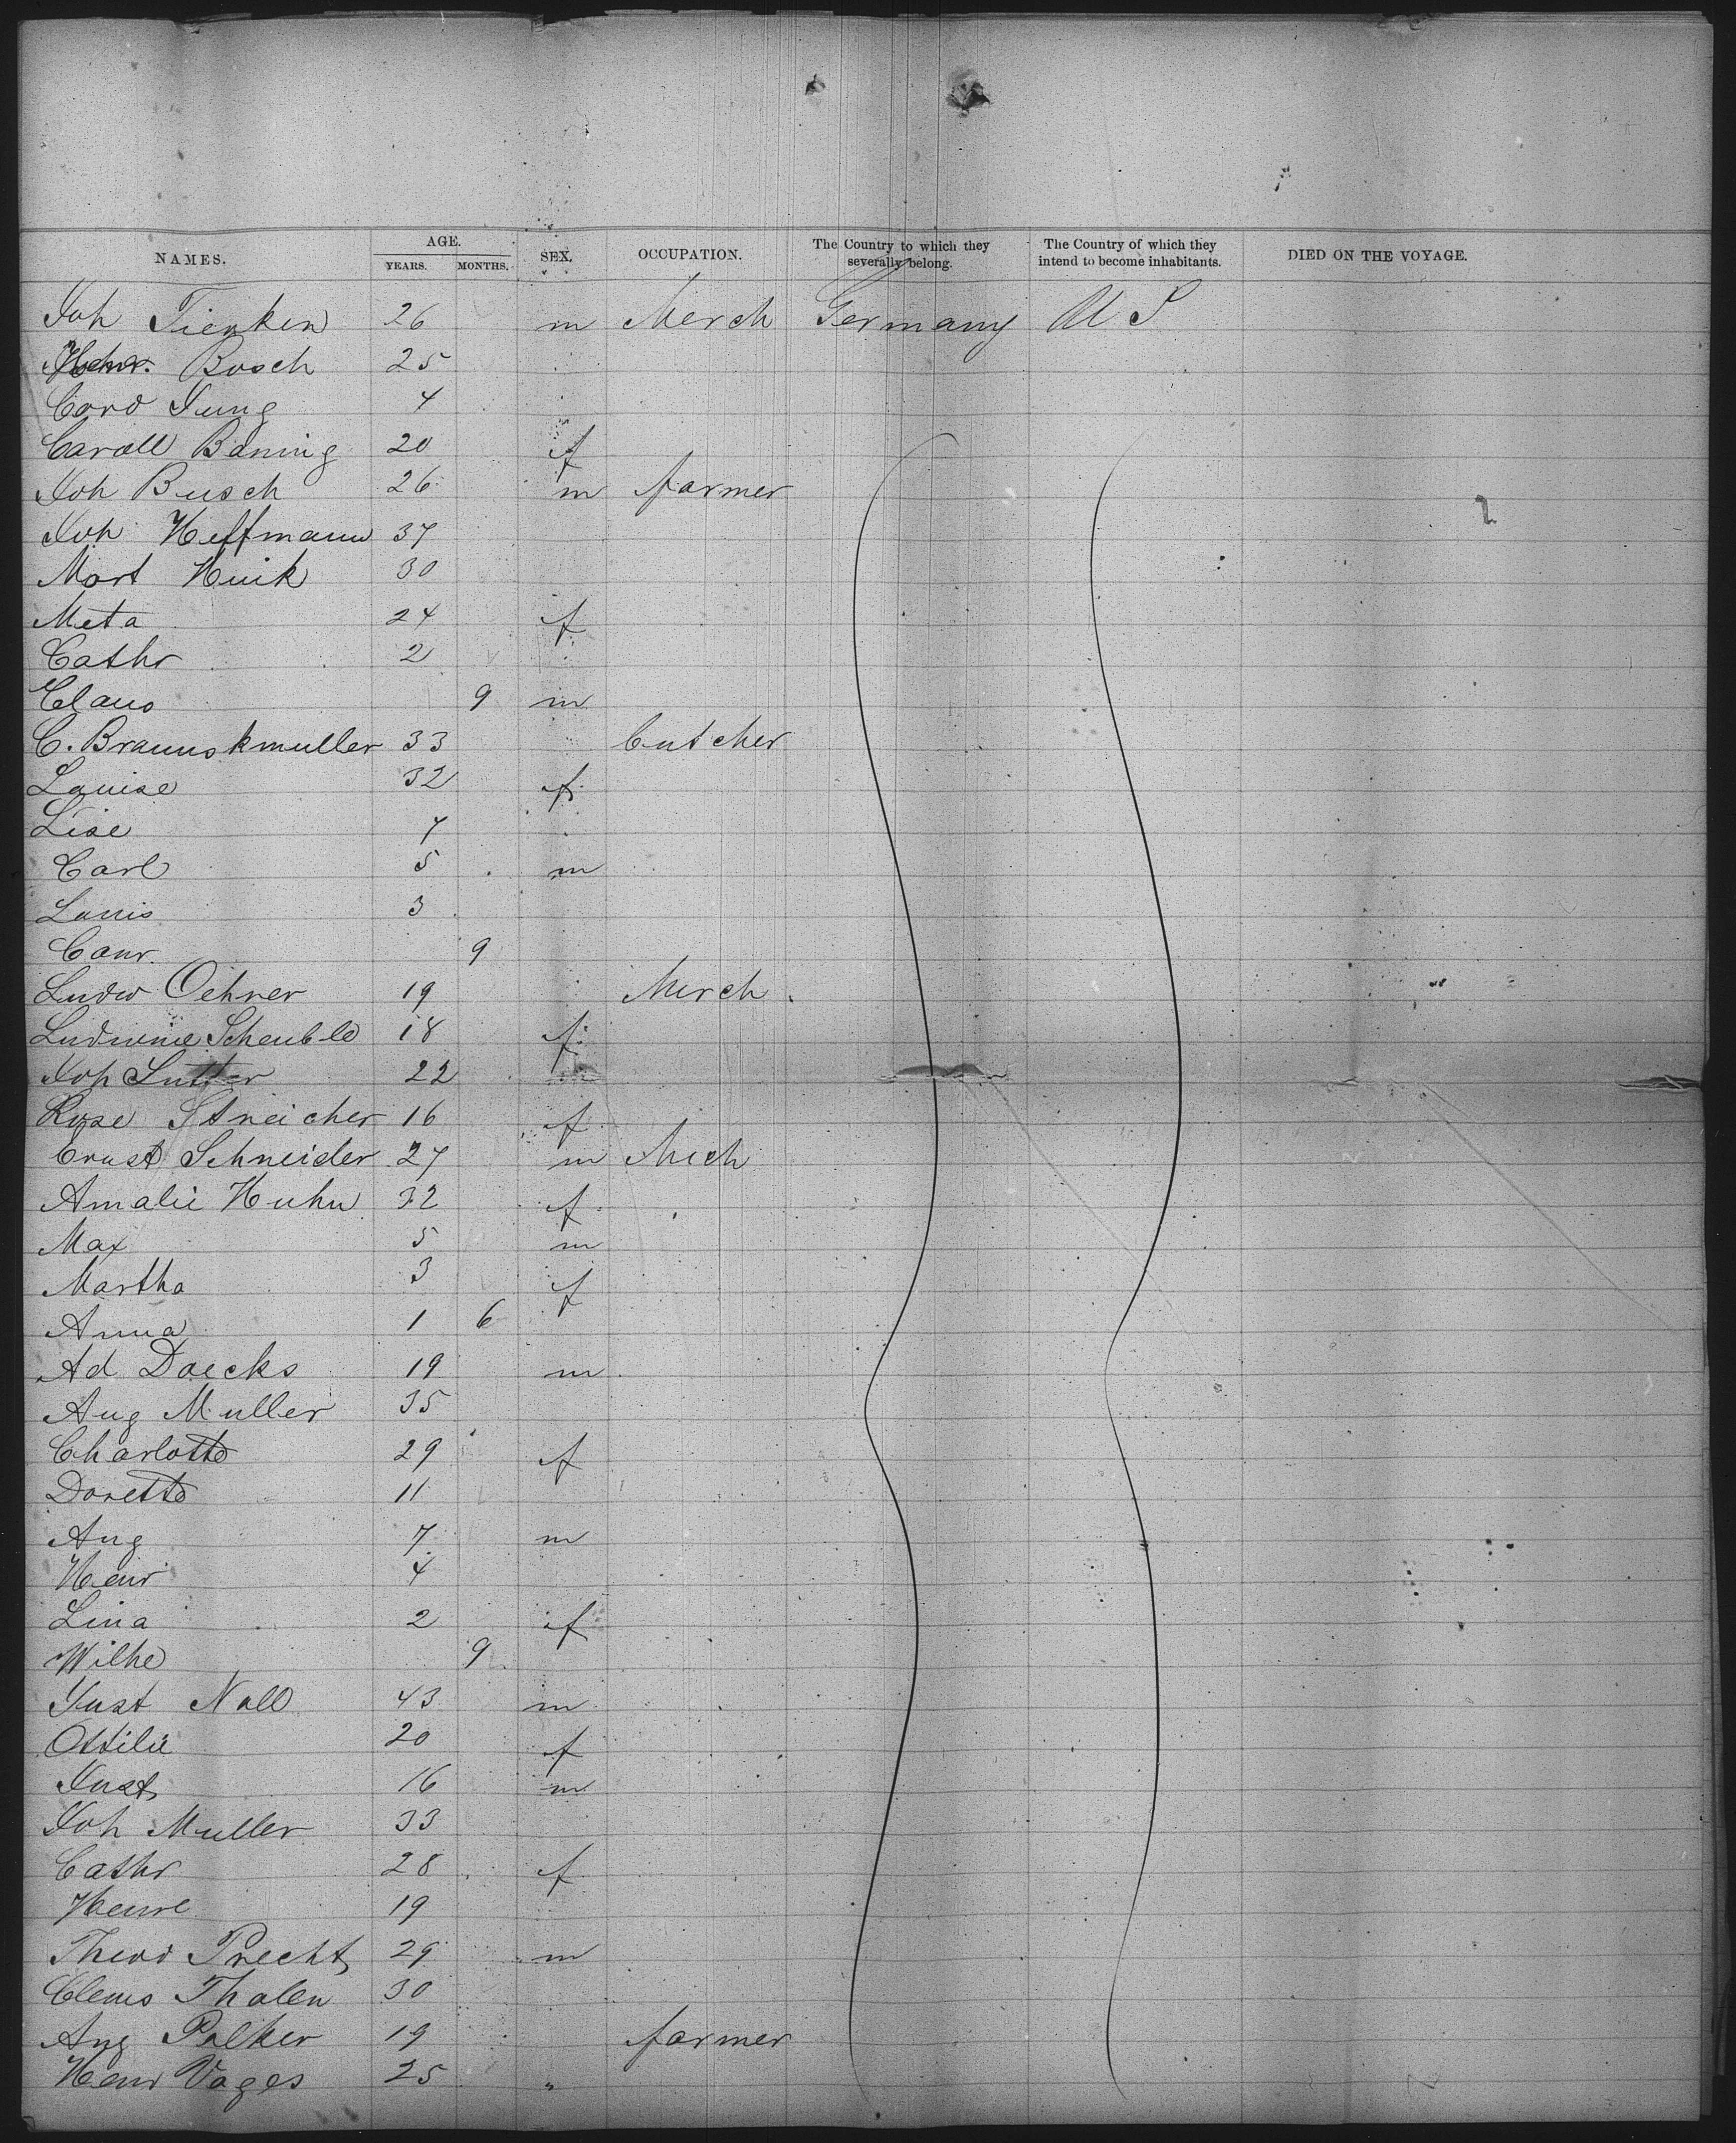 NAMES. AGE. YEARS. MONTHS. SEX. OCCUPATION. The Country to which they severally belong. The Country of which they intend to become inhabitants. DIED ON THE VOYAGE.
Joh Tienken 26 m Merch Germany U S
Bosch 25
Card Jung 4
Caroll Baning 20 f
Joh Busch 26 m farmer
Joh Heffmann 37
Mart Huik 30
Meta 24 f
Cathr 2
Claus 9 m
C. Braunskmuller 33 butcher
Louise 32 f
Lise 7
Carl 5 m
Louis 3
Conr. 9
Ludw Oehrer 19 Merch.
Ludwinie Scheuble 18 f
Joh Sutter 22 m
Rose Streicher 16 f
Ernst Schneider 27 m Mech
Amalie Huhn 32 f
Max 5 m
Martha 3 f
Anna 1 6
Ad Daecks 19 m
Aug Muller 35
Charlotte 29 f
Dorette 11
Aug 7 m
Henr 4
Lina 2 f
Wilhe 9
Just Noll 43 m
Ottilie 20 f
Just 16 m
Joh Muller 33
Cathr 28 f
Henre 19
Theod Precht 29 m
Clems Thalen 30
Aug Palker 19 farmer
Henr Vages 25 "